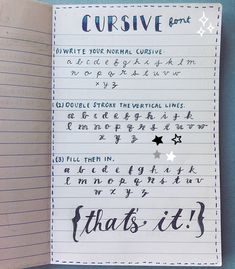 CURSIVE font
(1) WRITE YOUR NORMAL CURSIVE
a b c d e f g h i j k l m
n o p q r s t u v w
x y z
(2) DOUBLE STROKE THE VERTICAL LINES.
a b c d e f g h i j k
l m n o p q r s t u v w
x y z
(3) FILL THEM IN.
a b c d e f g h i j k
l m n o p q r s t u v
w x y z
{that's it!}